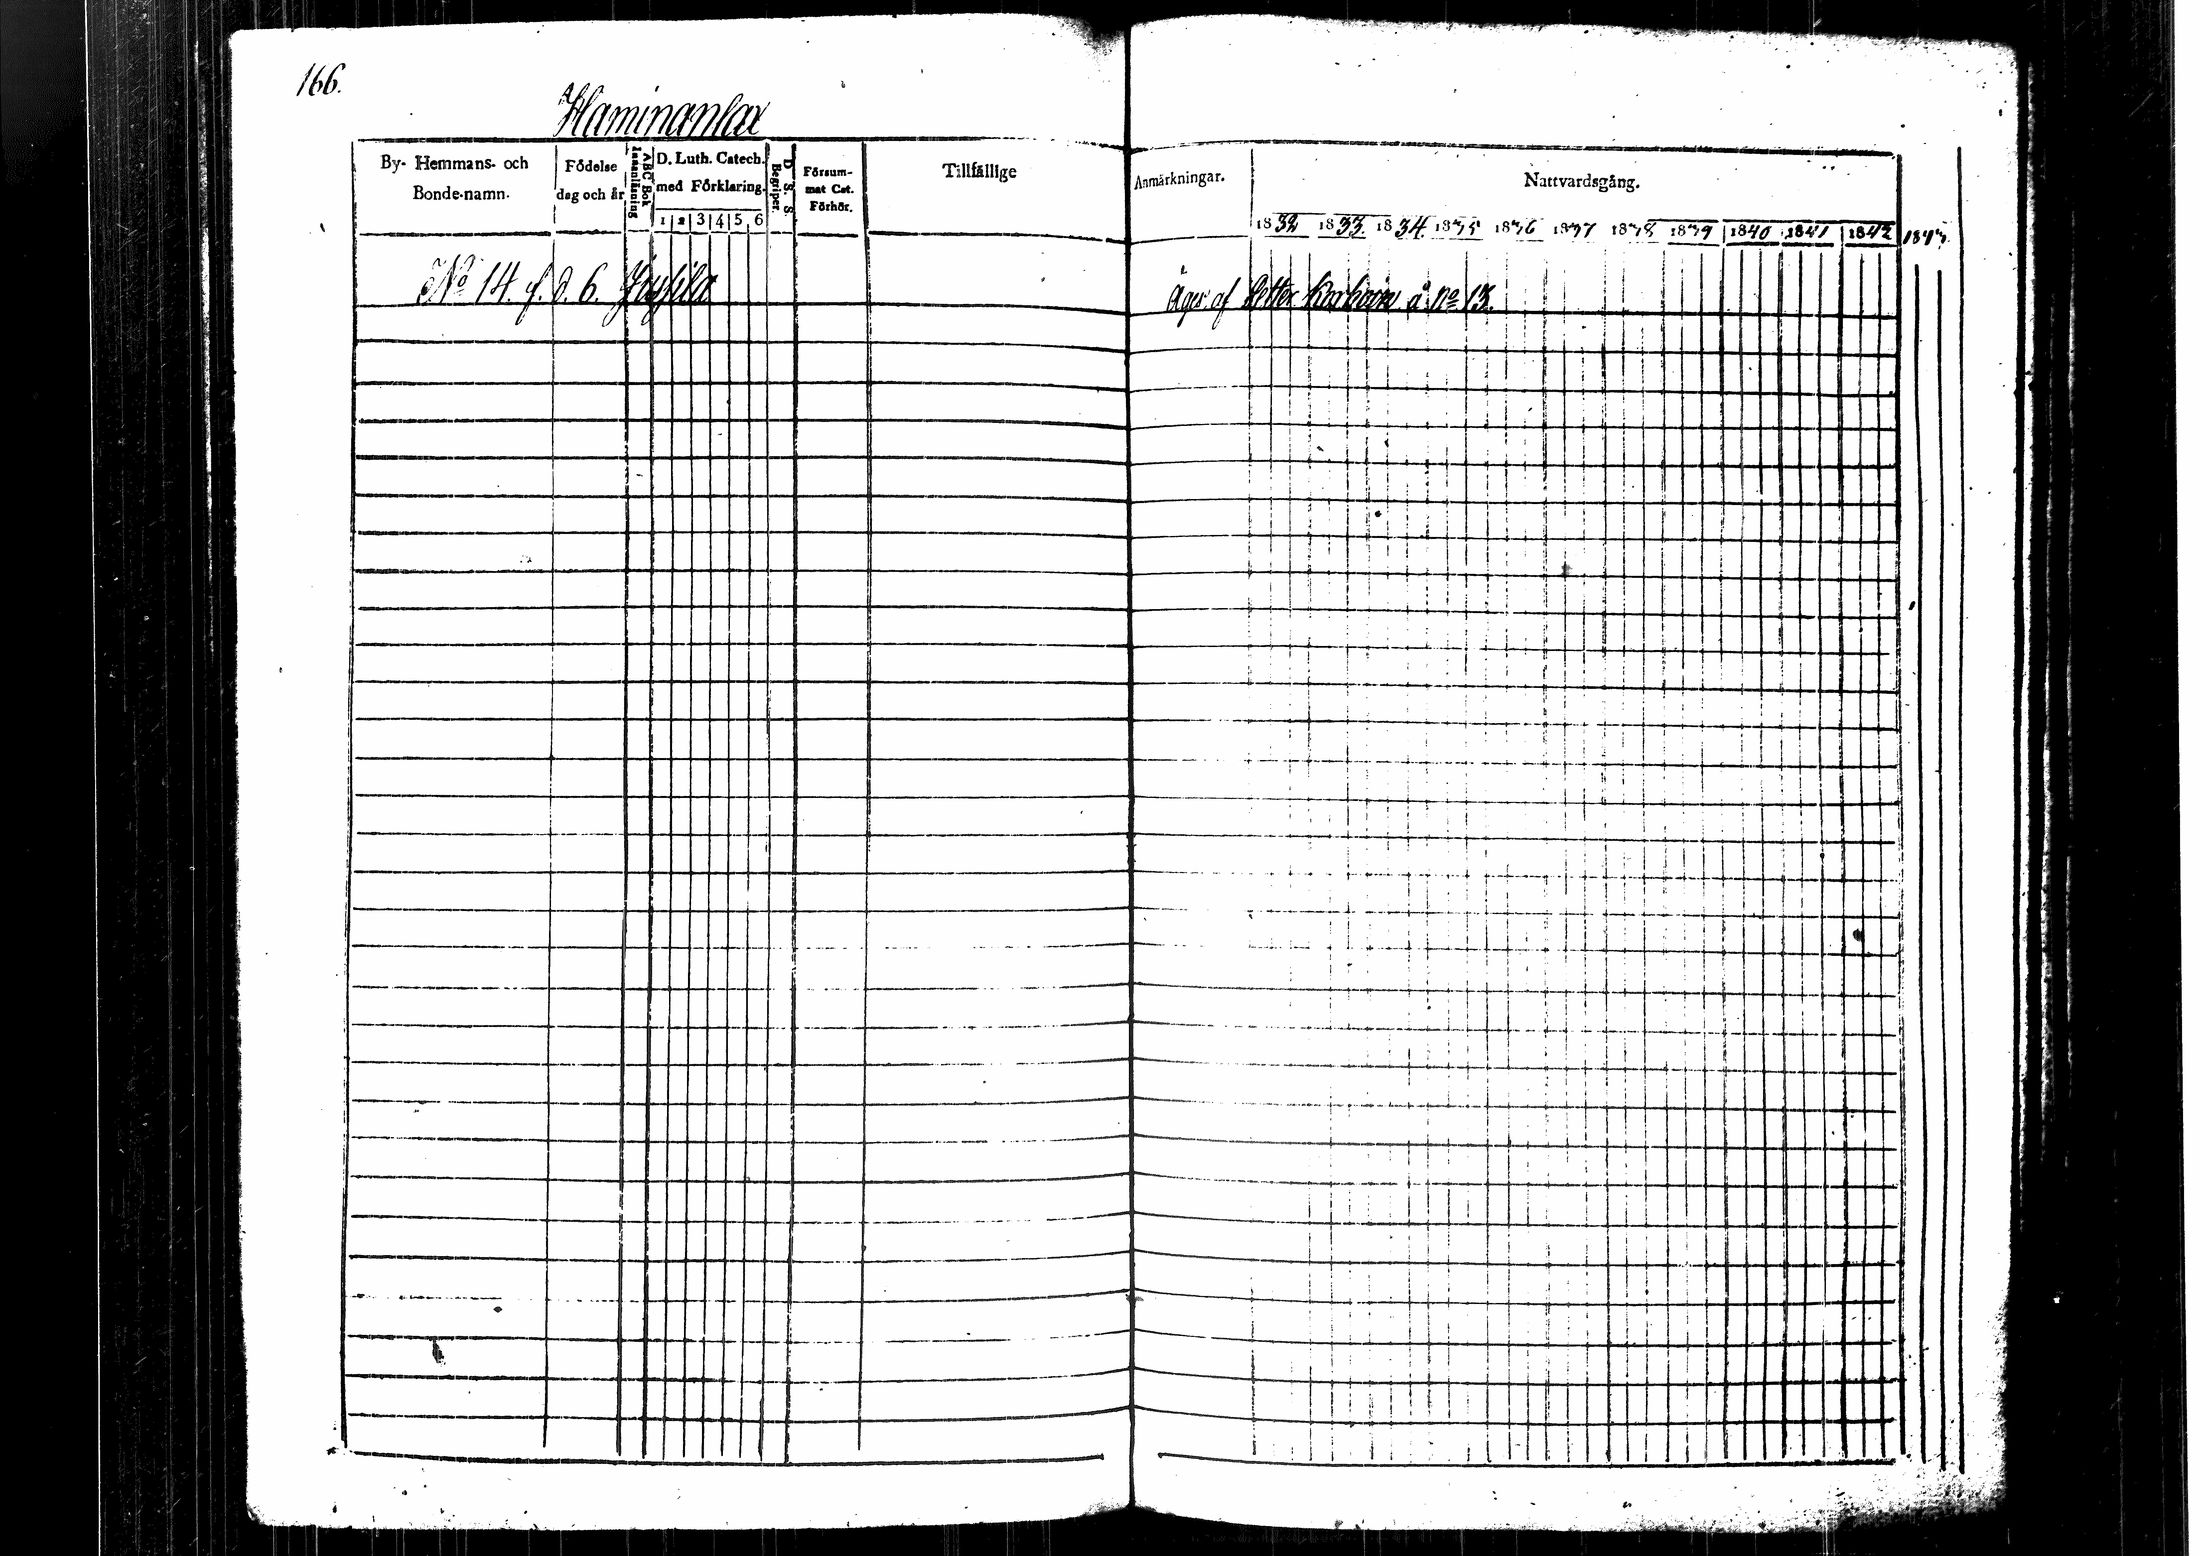 166.
Haminanlax
By- Hemmans- och Bonde-namn.
Födelse dag och år
ABC Bok Innanläsning
D. Luth. Catech. med Förklaring.
1 2 3 4 5 6
D. S. S. Begriper.
Försum-mat Cat. Förhör.
Tillfällige
Anmärkningar.
Nattvardsgång.
1832 1833 1834 1835 1836 1837 1838 1839 1840 1841 1842 1843
No 14. f. d. 6. Jussila
Äges af Petter å No 13.